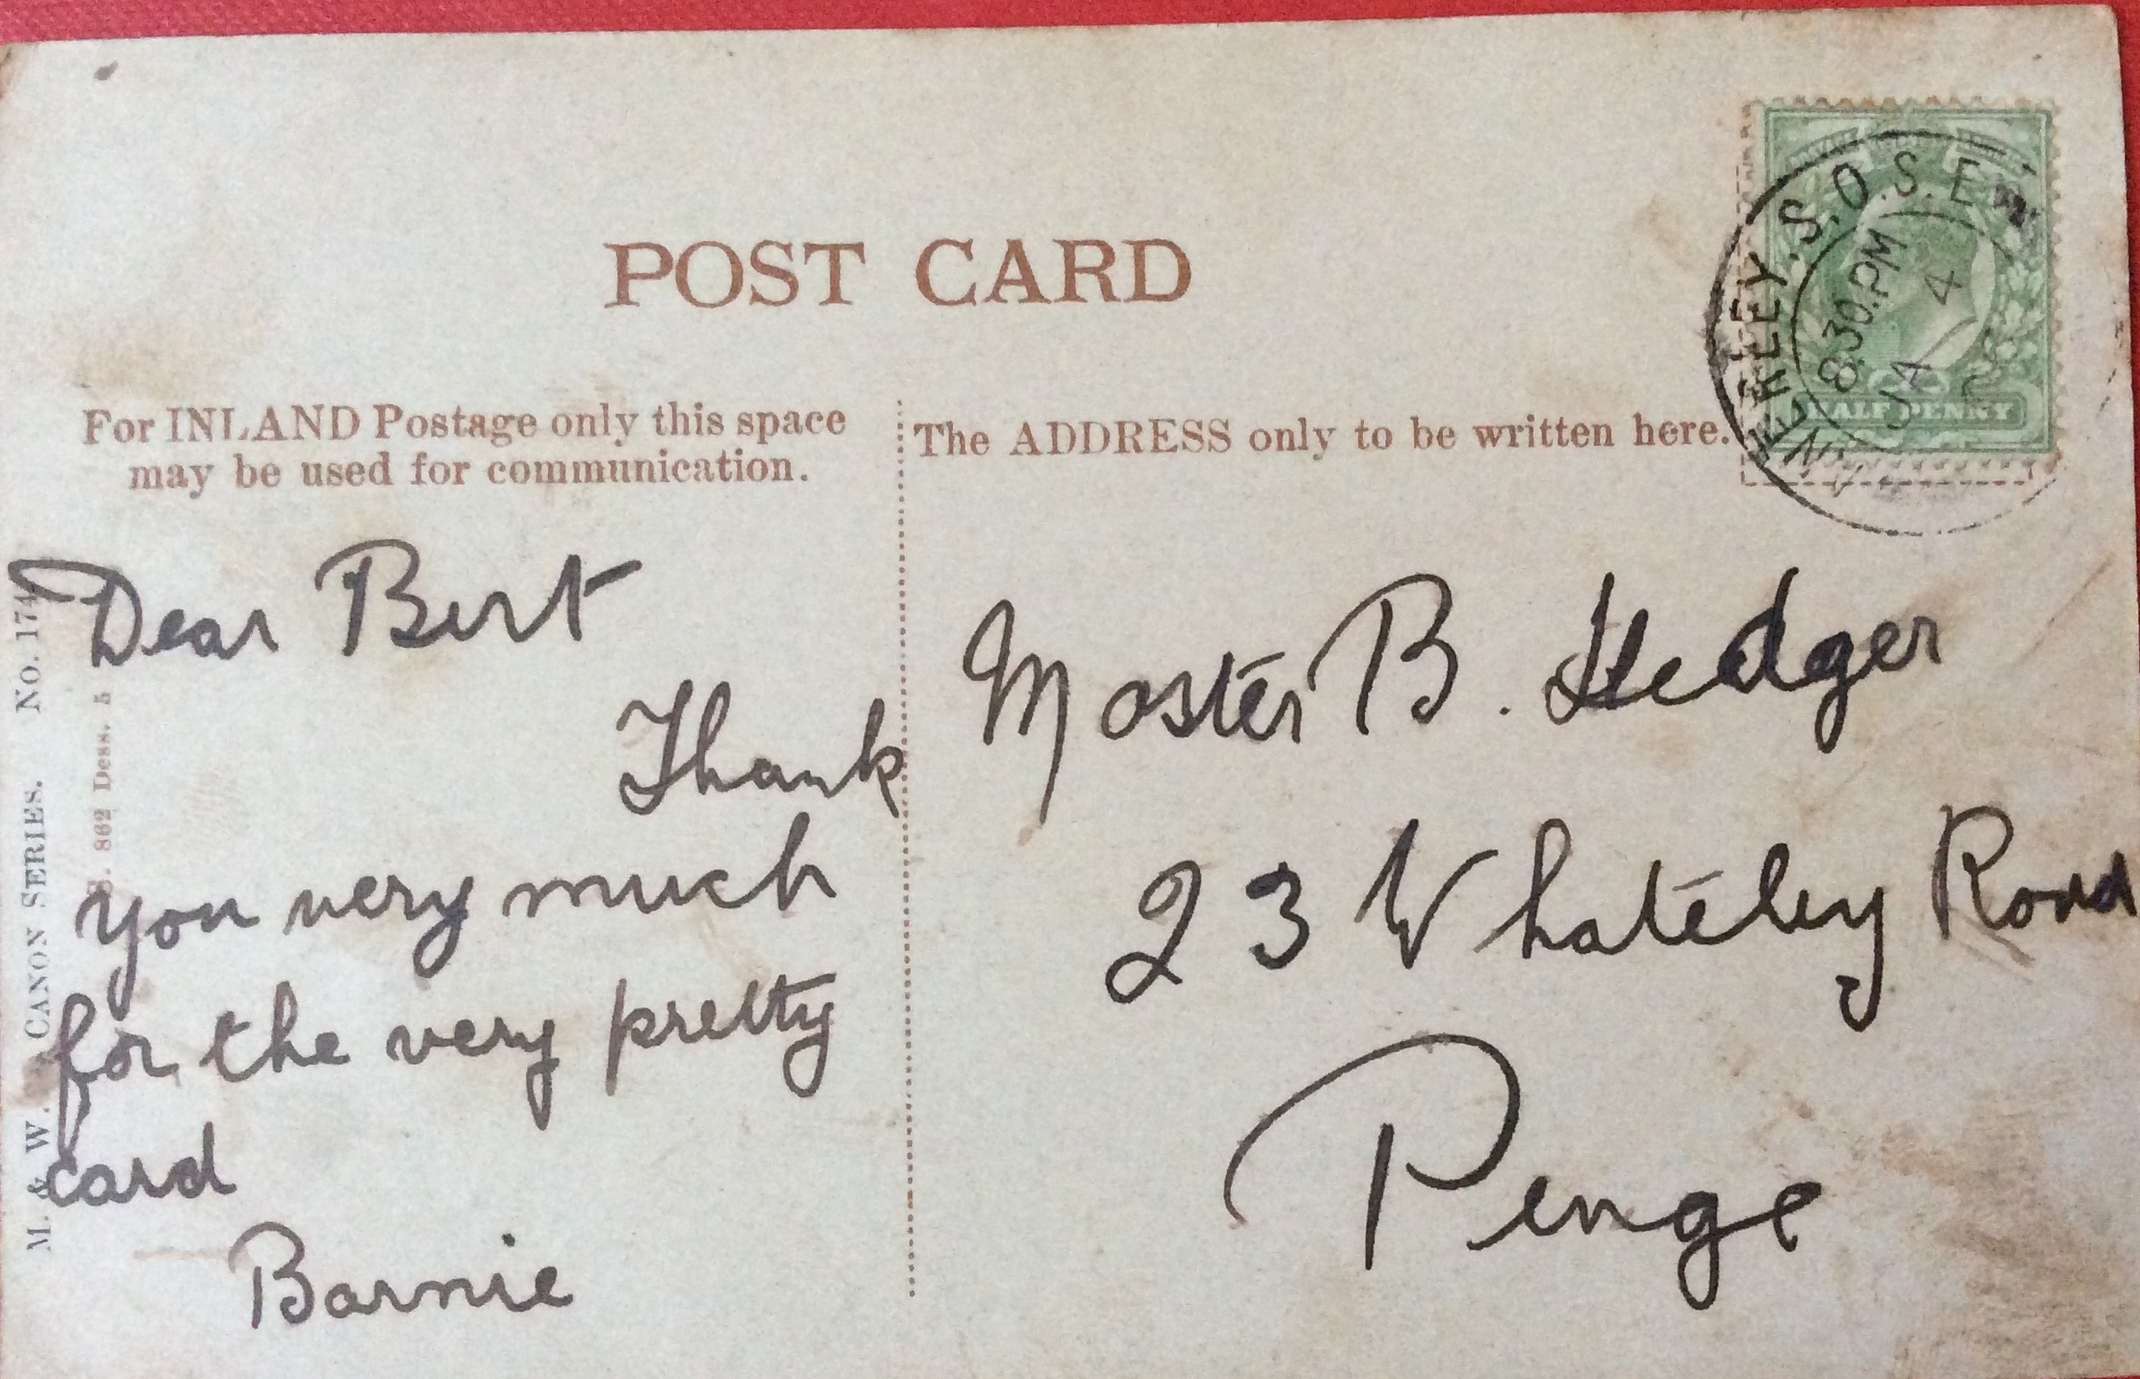 POST CARD
For INLAND Postage only this space
may be used for communication.
The ADDRESS only to be written here.
S.O.S.E.
8.30.PM
JA 4
HALF PENNY
Dear Bert
Thank
you very much
for the very pretty
card
Barnie
Master B. Hedger
23 Whateley Road
Penge
M. & W. CANON SERIES. No. 174
862 Dess. 5